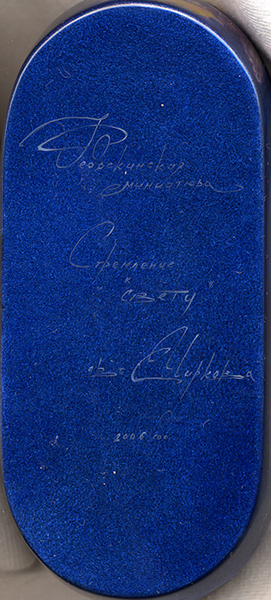 Федоскинская
миниатюра
Стремление
" к
свету "
Е. Чиркова
2006 год.